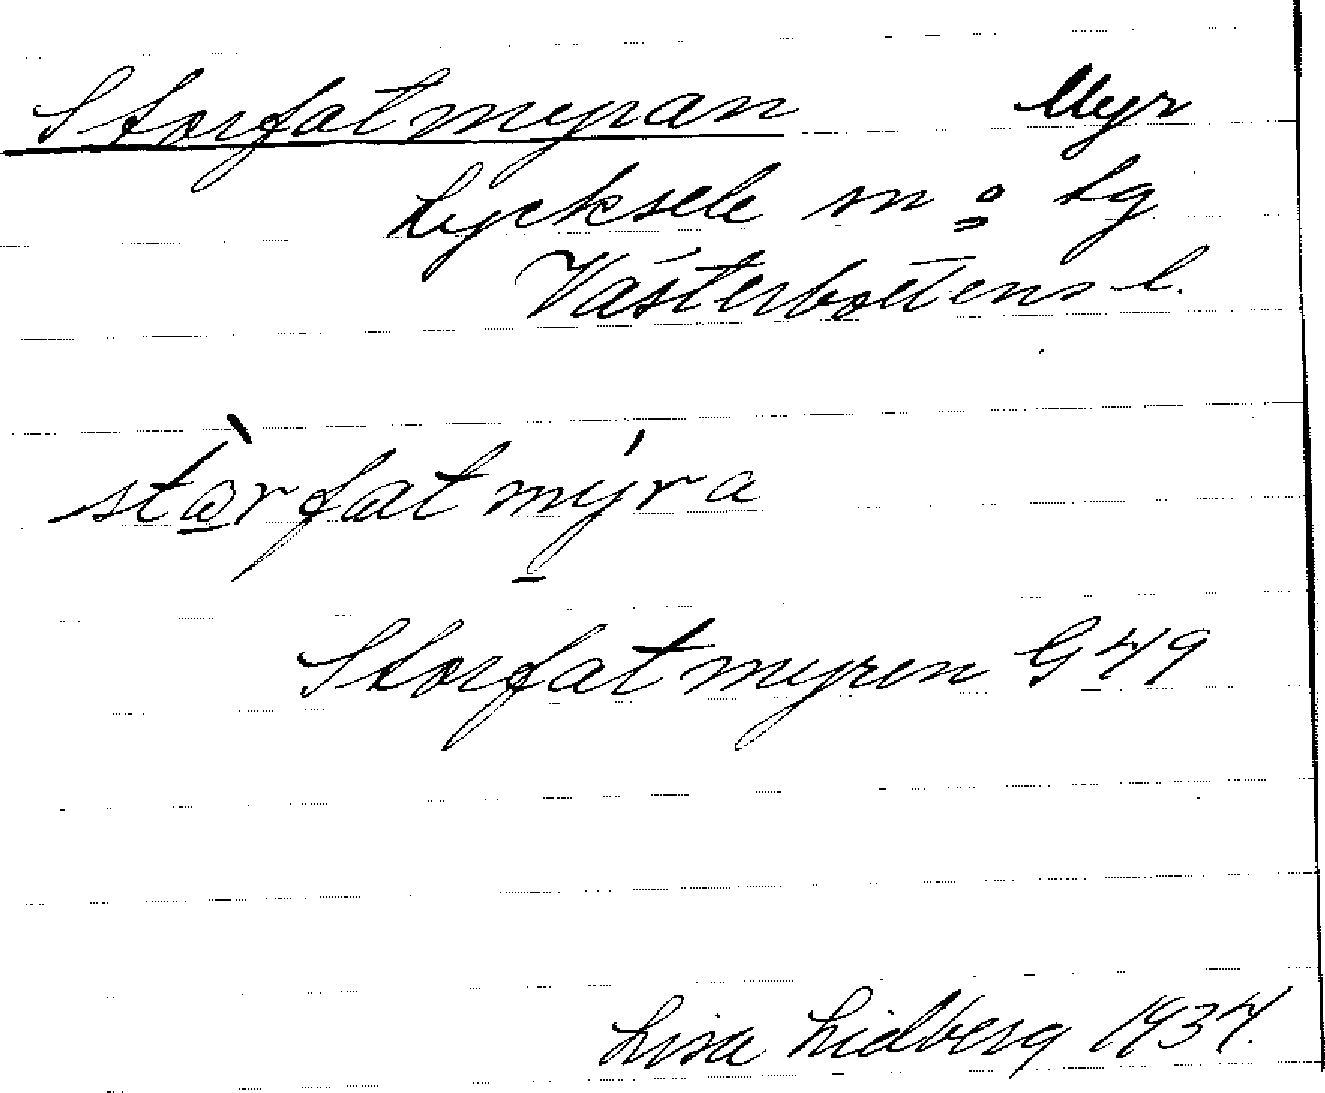 Storfatmyran Myr
Lycksele sn o. lg
Västerbottens l.
stòrfatmýra
Storfatmyren G 49
Lisa Lidberg 1934.